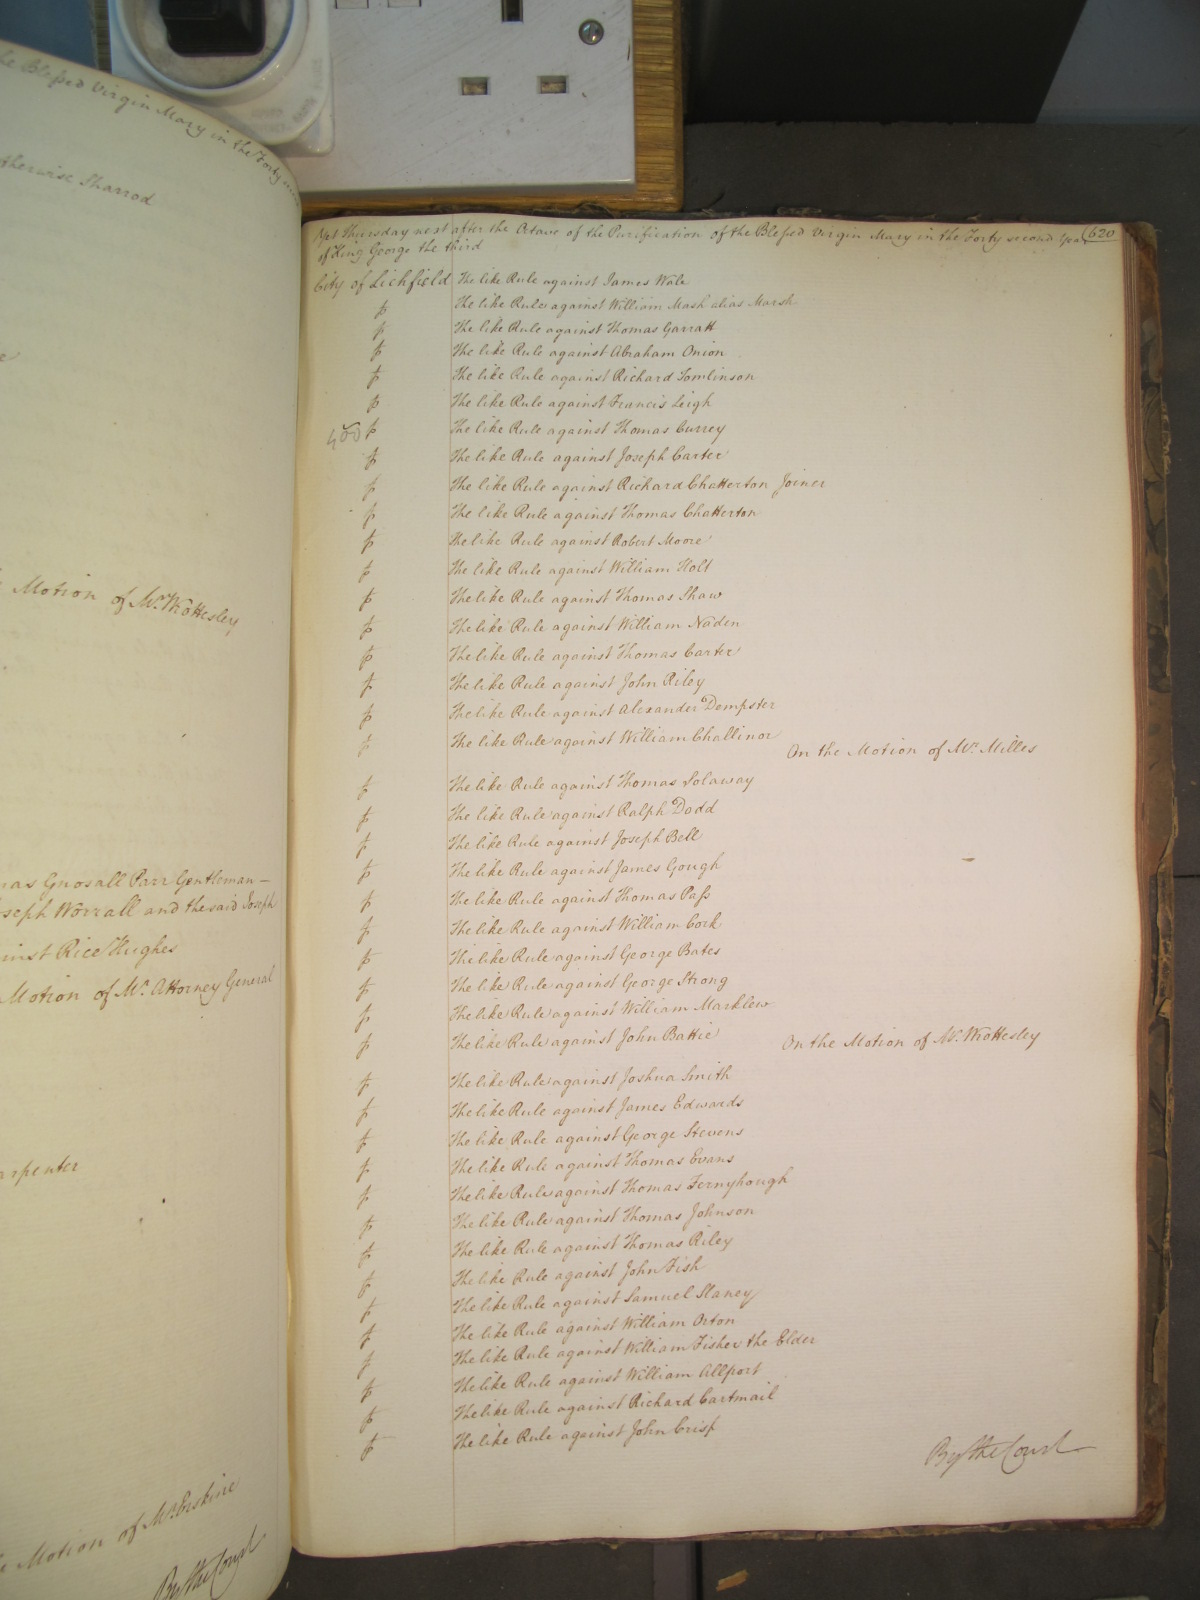 the Blessed Virgin Mary in the Forty
therwise Sharrod
Motion of Mr. Wrottesley
mas Gnosall Parr Gentleman
seph Worrall and the said Joseph
inst Rice Hughes
Motion of Mr. Attorney General
arpenter
Motion of Mr. Erskine
By the Court
Yet Thursday next after the Octave of the Purification of the Blessed Virgin Mary in the Forty second Year 620
of King George the third
City of Lichfield The like Rule against James Wale
The like Rule against William Mash alias Marsh
The like Rule against Thomas Garratt
The like Rule against Abraham Onion
The like Rule against Richard Tomlinson
The like Rule against Francis Leigh
400 The like Rule against Thomas Currey
The like Rule against Joseph Carter
The like Rule against Richard Chatterton Joiner
The like Rule against Thomas Chatterton
The like Rule against Robert Moore
The like Rule against William Holt
The like Rule against Thomas Shaw
The like Rule against William Naden
The like Rule against Thomas Carter
The like Rule against John Riley
The like Rule against Alexander Dempster
The like Rule against William Challinor
On the Motion of Mr. Milles
The like Rule against Thomas Solaway
The like Rule against Ralph Dodd
The like Rule against Joseph Bell
The like Rule against James Gough
The like Rule against Thomas Pass
The like Rule against William Cork
The like Rule against George Bates
The like Rule against George Strong
The like Rule against William Marklew
The like Rule against John Battie On the Motion of Mr. Wrottesley
The like Rule against Joshua Smith
The like Rule against James Edwards
The like Rule against George Stevens
The like Rule against Thomas Evans
The like Rule against Thomas Fernyhough
The like Rule against Thomas Johnson
The like Rule against Thomas Riley
The like Rule against John Fish
The like Rule against Samuel Slaney
The like Rule against William Orton
The like Rule against William Fisher the Elder
The like Rule against William Allport
The like Rule against Richard Cartmail
The like Rule against John Crisp
By the Court